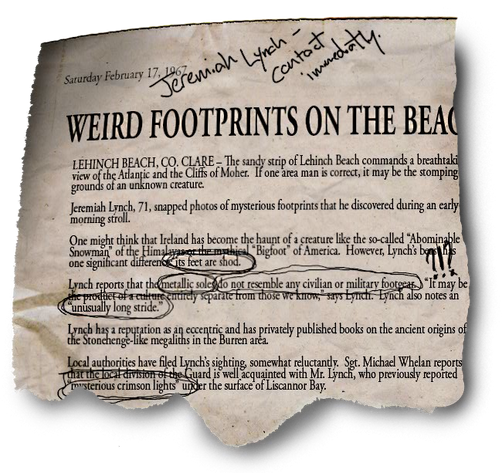 Jeremiah Lynch –
contact
immediately.
Saturday February 17, 1967
WEIRD FOOTPRINTS ON THE BEAC
LEHINCH BEACH, CO. CLARE – The sandy strip of Lehinch Beach commands a breathtaki
view of the Atlantic and the Cliffs of Moher. If one area man is correct, it may be the stomping
grounds of an unknown creature.
Jeremiah Lynch, 71, snapped photos of mysterious footprints that he discovered during an early
morning stroll.
One might think that Ireland has become the haunt of a creature like the so-called "Abominable
Snowman" of the Himalayas or the mythical "Bigfoot" of America. However, Lynch's has
one significant difference: its feet are shod.
!!!
Lynch reports that the metallic soles do not resemble any civilian or military footgear. "If may be
the product of a culture entirely separate from those we know," says Lynch. Lynch also notes an
"unusually long stride."
Lynch has a reputation as an eccentric and has privately published books on the ancient origins of
the Stonehenge-like megaliths in the Burren area.
Local authorities have filed Lynch's sighting, somewhat reluctantly. Sgt. Michael Whelan reports
that the local division of the Guard is well acquainted with Mr. Lynch, who previously reported
"mysterious crimson lights" under the surface of Liscannor Bay.